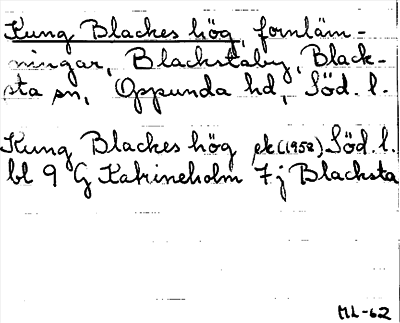 Kung Blackes hög, fornläm-
ningar, Blackstaby, Black-
sta sn, Oppunda hd, Söd. l.
Kung Blackes hög ek (1958) Söd. l.
bl 9 G Katrineholm 7j Blacksta
ML-62